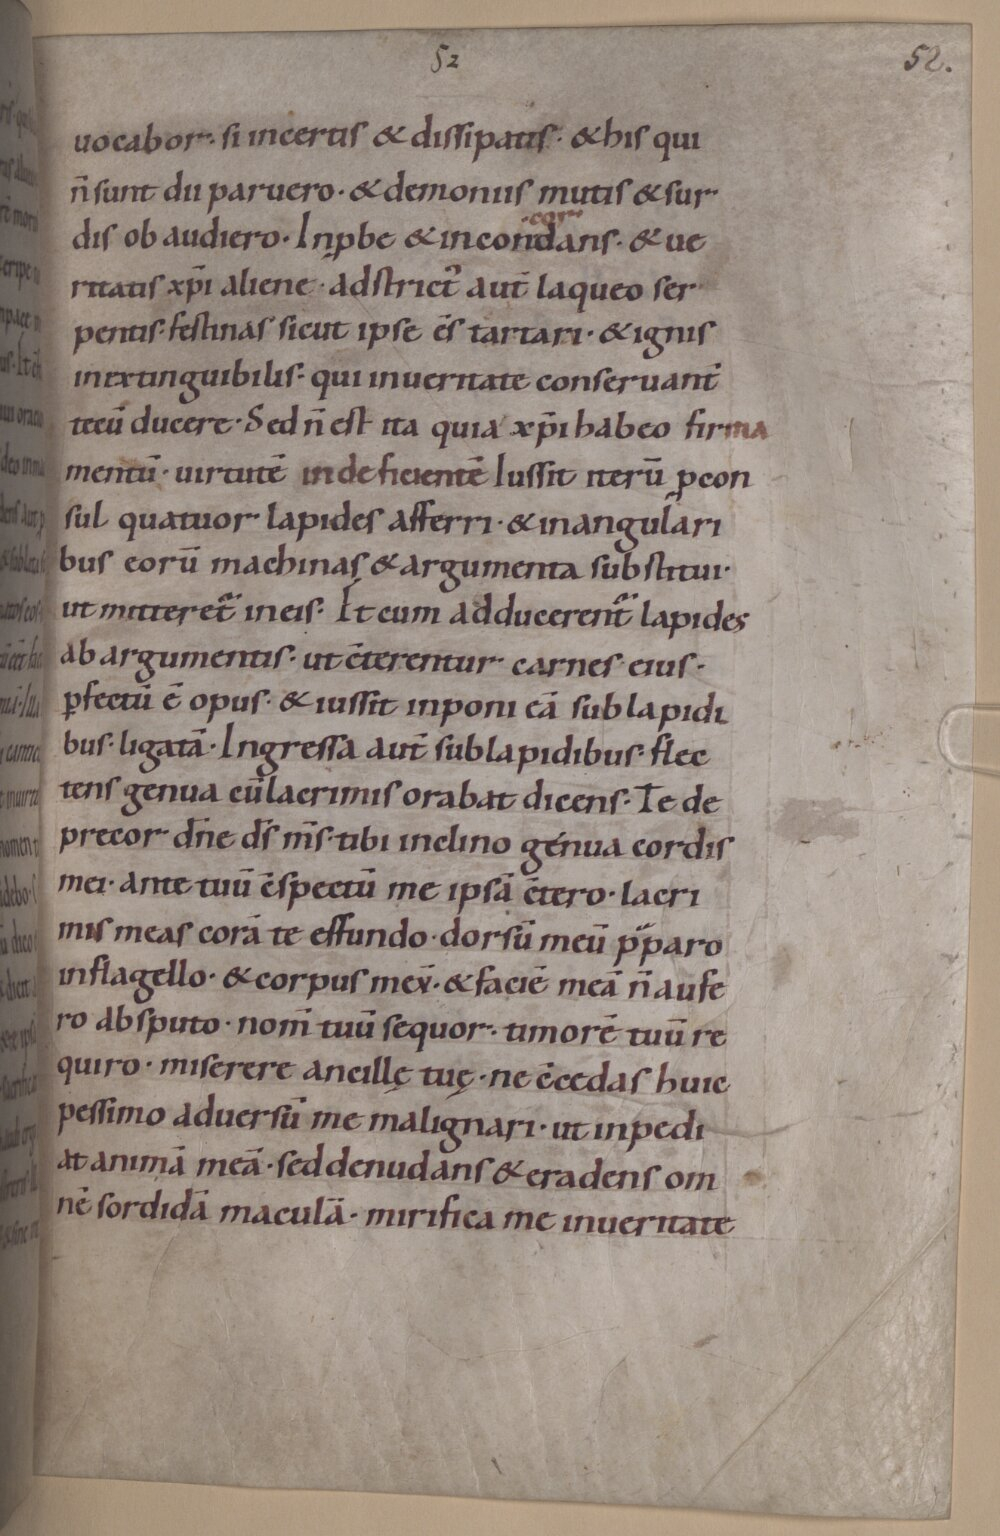 52 52.
uocabor. si incertis & dissipatis. & his qui
n̄ sunt dii paruero. & demoniis mutis & sur
cor
dis obaudiero. Inꝓbe & incondans. & ue
ritatis xp̄i aliene. adstrict᾽ aut̄ laqueo ser
pentis. festinas sicut ipse ēs tartari. & ignis
inextinguibilis. qui inueritate conseruant̄
tecū ducere. Sed n̄ est ita quia xp̄i habeo firma
mentū. uirtutē indeficientē Iussit iterū ꝓcon
sul quatuor lapides afferri. & inangulari
bus eorū machinas & argumenta substitui.
ut mitteret̄ ineis. Et cum adducerent̄ lapides
ab argumentis. ut c̄tererentur carnes eius.
ꝑfectū ē opus. & iussit inponi eā sub lapidi
bus. ligatā. Ingressa aut̄ sub lapidibus. flec
tens genua cū lacrimis orabat dicens. Te de
precor dn̄e ds̄ ms̄. tibi inclino génua cordis
mei. ante tuū c̄spectū me ipsā c̄tero. lacri
mis meas corā te effundo. dorsū meū p̄paro
inflagello. & corpus meū. & faciē meā n̄ aufe
ro absputo. nom̄ tuū sequor. timorē tuū re
quiro. miserere ancillę tuę. ne c̄cedas huic
pessimo aduersū me malignari. ut inpedi
at animā meā. sed denudans & eradens om
nē sordidā maculā. mirifica me inueritate